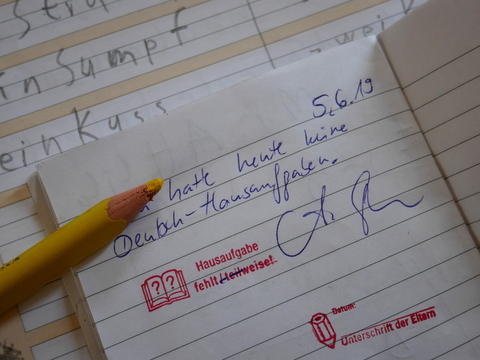 in Sumpf
ein Kuss
5.6.19
hatte heute keine
Deutsch-Hausaufgaben.
Hausaufgabe
fehlt teilweise!
Datum:
Unterschrift der Eltern